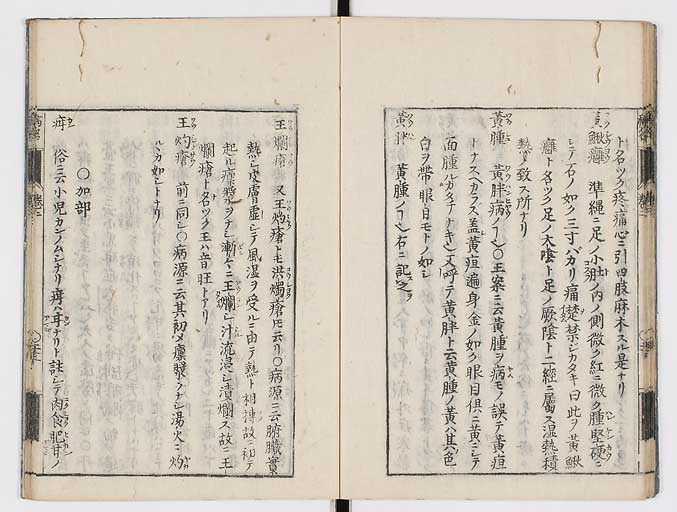 ト名ツク疼痛心ニ引四肢麻木スル是ナリ
黄鰍癰 準繩ニ足ノ小肚ノ内ノ側微ク紅ニ微ク腫堅硬ニ
シテ石ノ如ク三寸バカリ痛楚禁ジカタキ曰此ヲ黄鰍
癰ト名ツク足ノ太陰ト足ノ厥陰ト二經ニ屬ス湿熱積
熱ノ致ス所ナリ
黄腫 黄胖病ノ○王案ニ云黄腫ヲ病モノ誤テ黄疸
トナスカラス盖黄疸遍身金ノ如ク眼目俱ニ黄ニシテ
面腫ルカタチナキ又呼テ黄胖ト云黄腫ノ黄ハ其色
白ヲ帯眼目モトノ如シ
黄胖 黄腫ノ石ニ記之
王爛瘡 又王灼瘡トモ洪燭瘡トモ云リ○病源ニ云腑臓實
熱シ皮膚虛シテ風湿ヲ受ルニ由テ熱ト相搏故ニ初テ
起ル瘭漿ヲナシ漸々ニ王爛シ汁流浸シ漬爛ス故ニ王
爛瘡ト名ツク王ハ音旺トアリ
王灼瘡 前ニ同シ○病源ニ云其初メ瘭漿ヲナシ湯火ニ灼
ルカ如シトナリ
○加部
疳 俗ニ云小児カンノムシナリ疳ハ耳ナリト註シテ肉食肥甘ノ